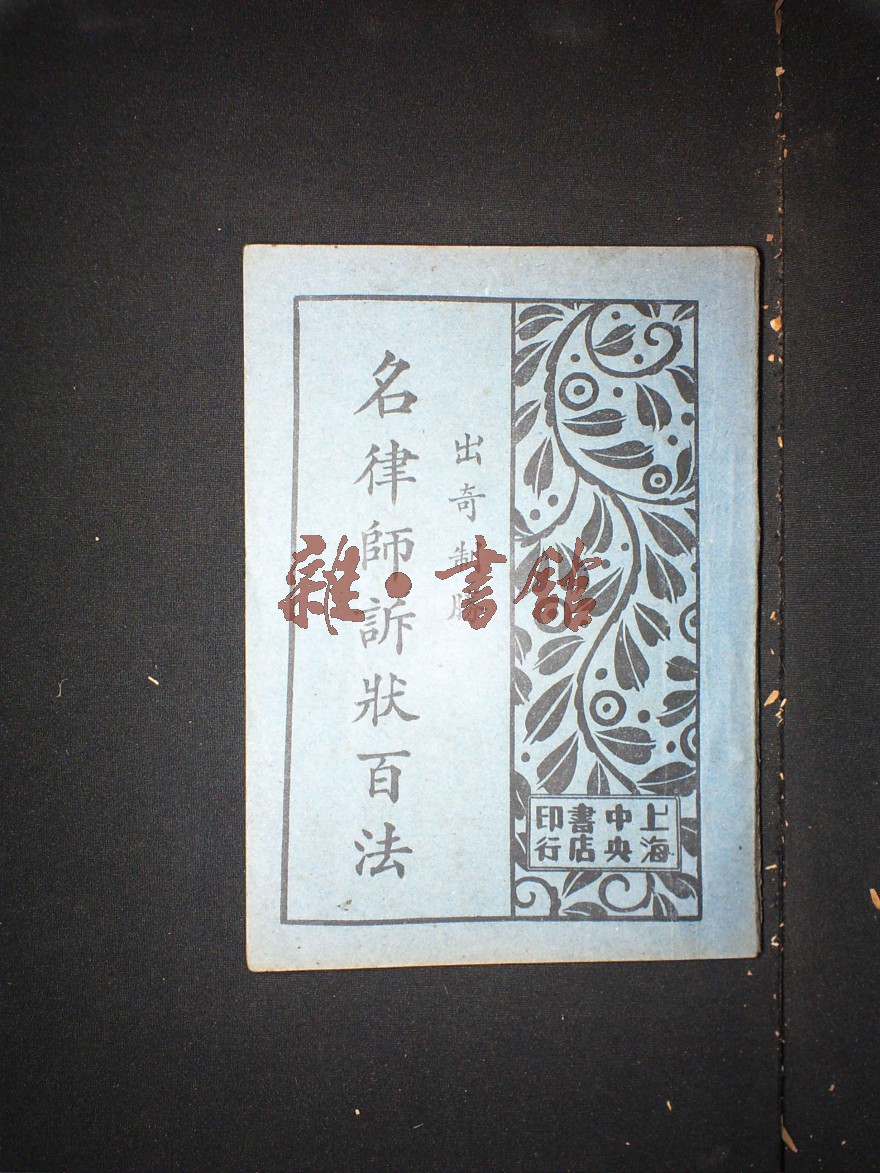 出奇制勝
名律師訴狀百法
上海
中央
書店
印行
雜·書館